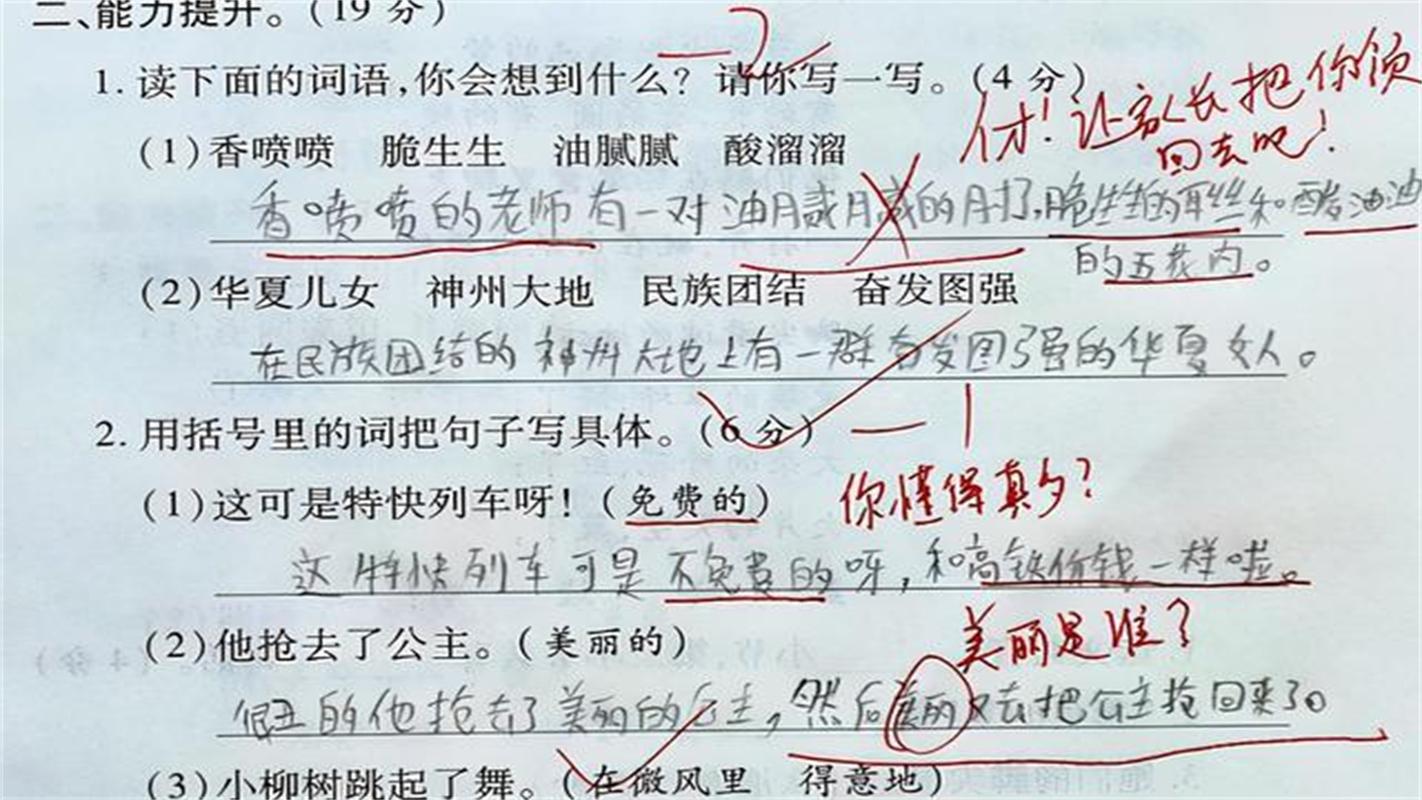 二、能力提升。(19 分)
-2
1. 读下面的词语,你会想到什么? 请你写一写。(4 分)
人才!让家长把你领
回去吧!
(1)香喷喷 脆生生 油腻腻 酸溜溜
香喷喷的老师有一对油腻腻的肘子,脆生生的耳丝和酸油油
的五花肉。
(2)华夏儿女 神州大地 民族团结 奋发图强
在民族团结的神州大地上有一群奋发图强的华夏女人。
2. 用括号里的词把句子写具体。(6 分) -1
(1)这可是特快列车呀!(免费的) 你懂得真多?
这特快列车可是不免费的呀,和高铁价钱一样啦。
(2)他抢去了公主。(美丽的) 美丽是谁?
很丑的他抢去了美丽的公主,然后美丽又去把公主抢回来了。
(3)小柳树跳起了舞。(在微风里 得意地)